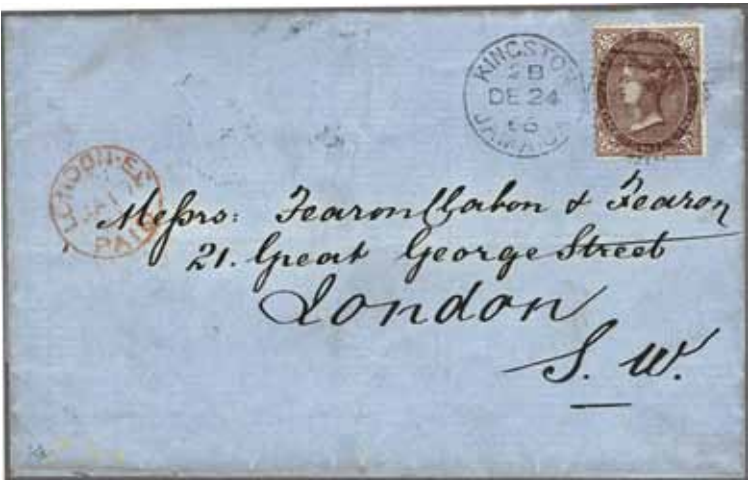 KINGSTON
2B
DE 24
66
JAMAICA
LONDON·EC
PAID
Messrs: Fearon Clabon & Fearon
21. Great George Street
London
S. W.